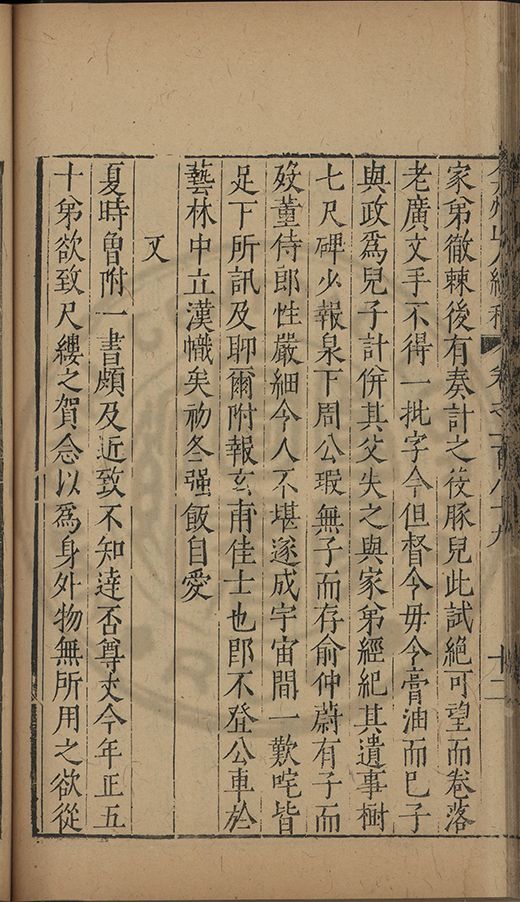 家弟徹棘後有奏計之筱豚兒此試絶可望而卷落
老廣文手不得一批字今但督令毋令膏油而已子
與政為兒子計倂其父失之與家弟經紀其遺事樹
七尺碑少報泉下周公瑕無子而存俞仲蔚有子而
歿董侍郎性嚴細令人不堪遂成宇宙間一歎咤皆
足下所訊及聊爾附報玄甫佳士也卽不登公車於
藝林中立漢幟矣初冬强飯自愛
又
夏時魯附一書頗及近致不知達否尊丈今年正五
十弟欲致尺縷之賀念以為身外物無所用之欲從